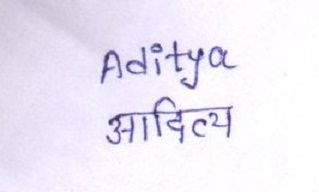 Aditya
आदित्य